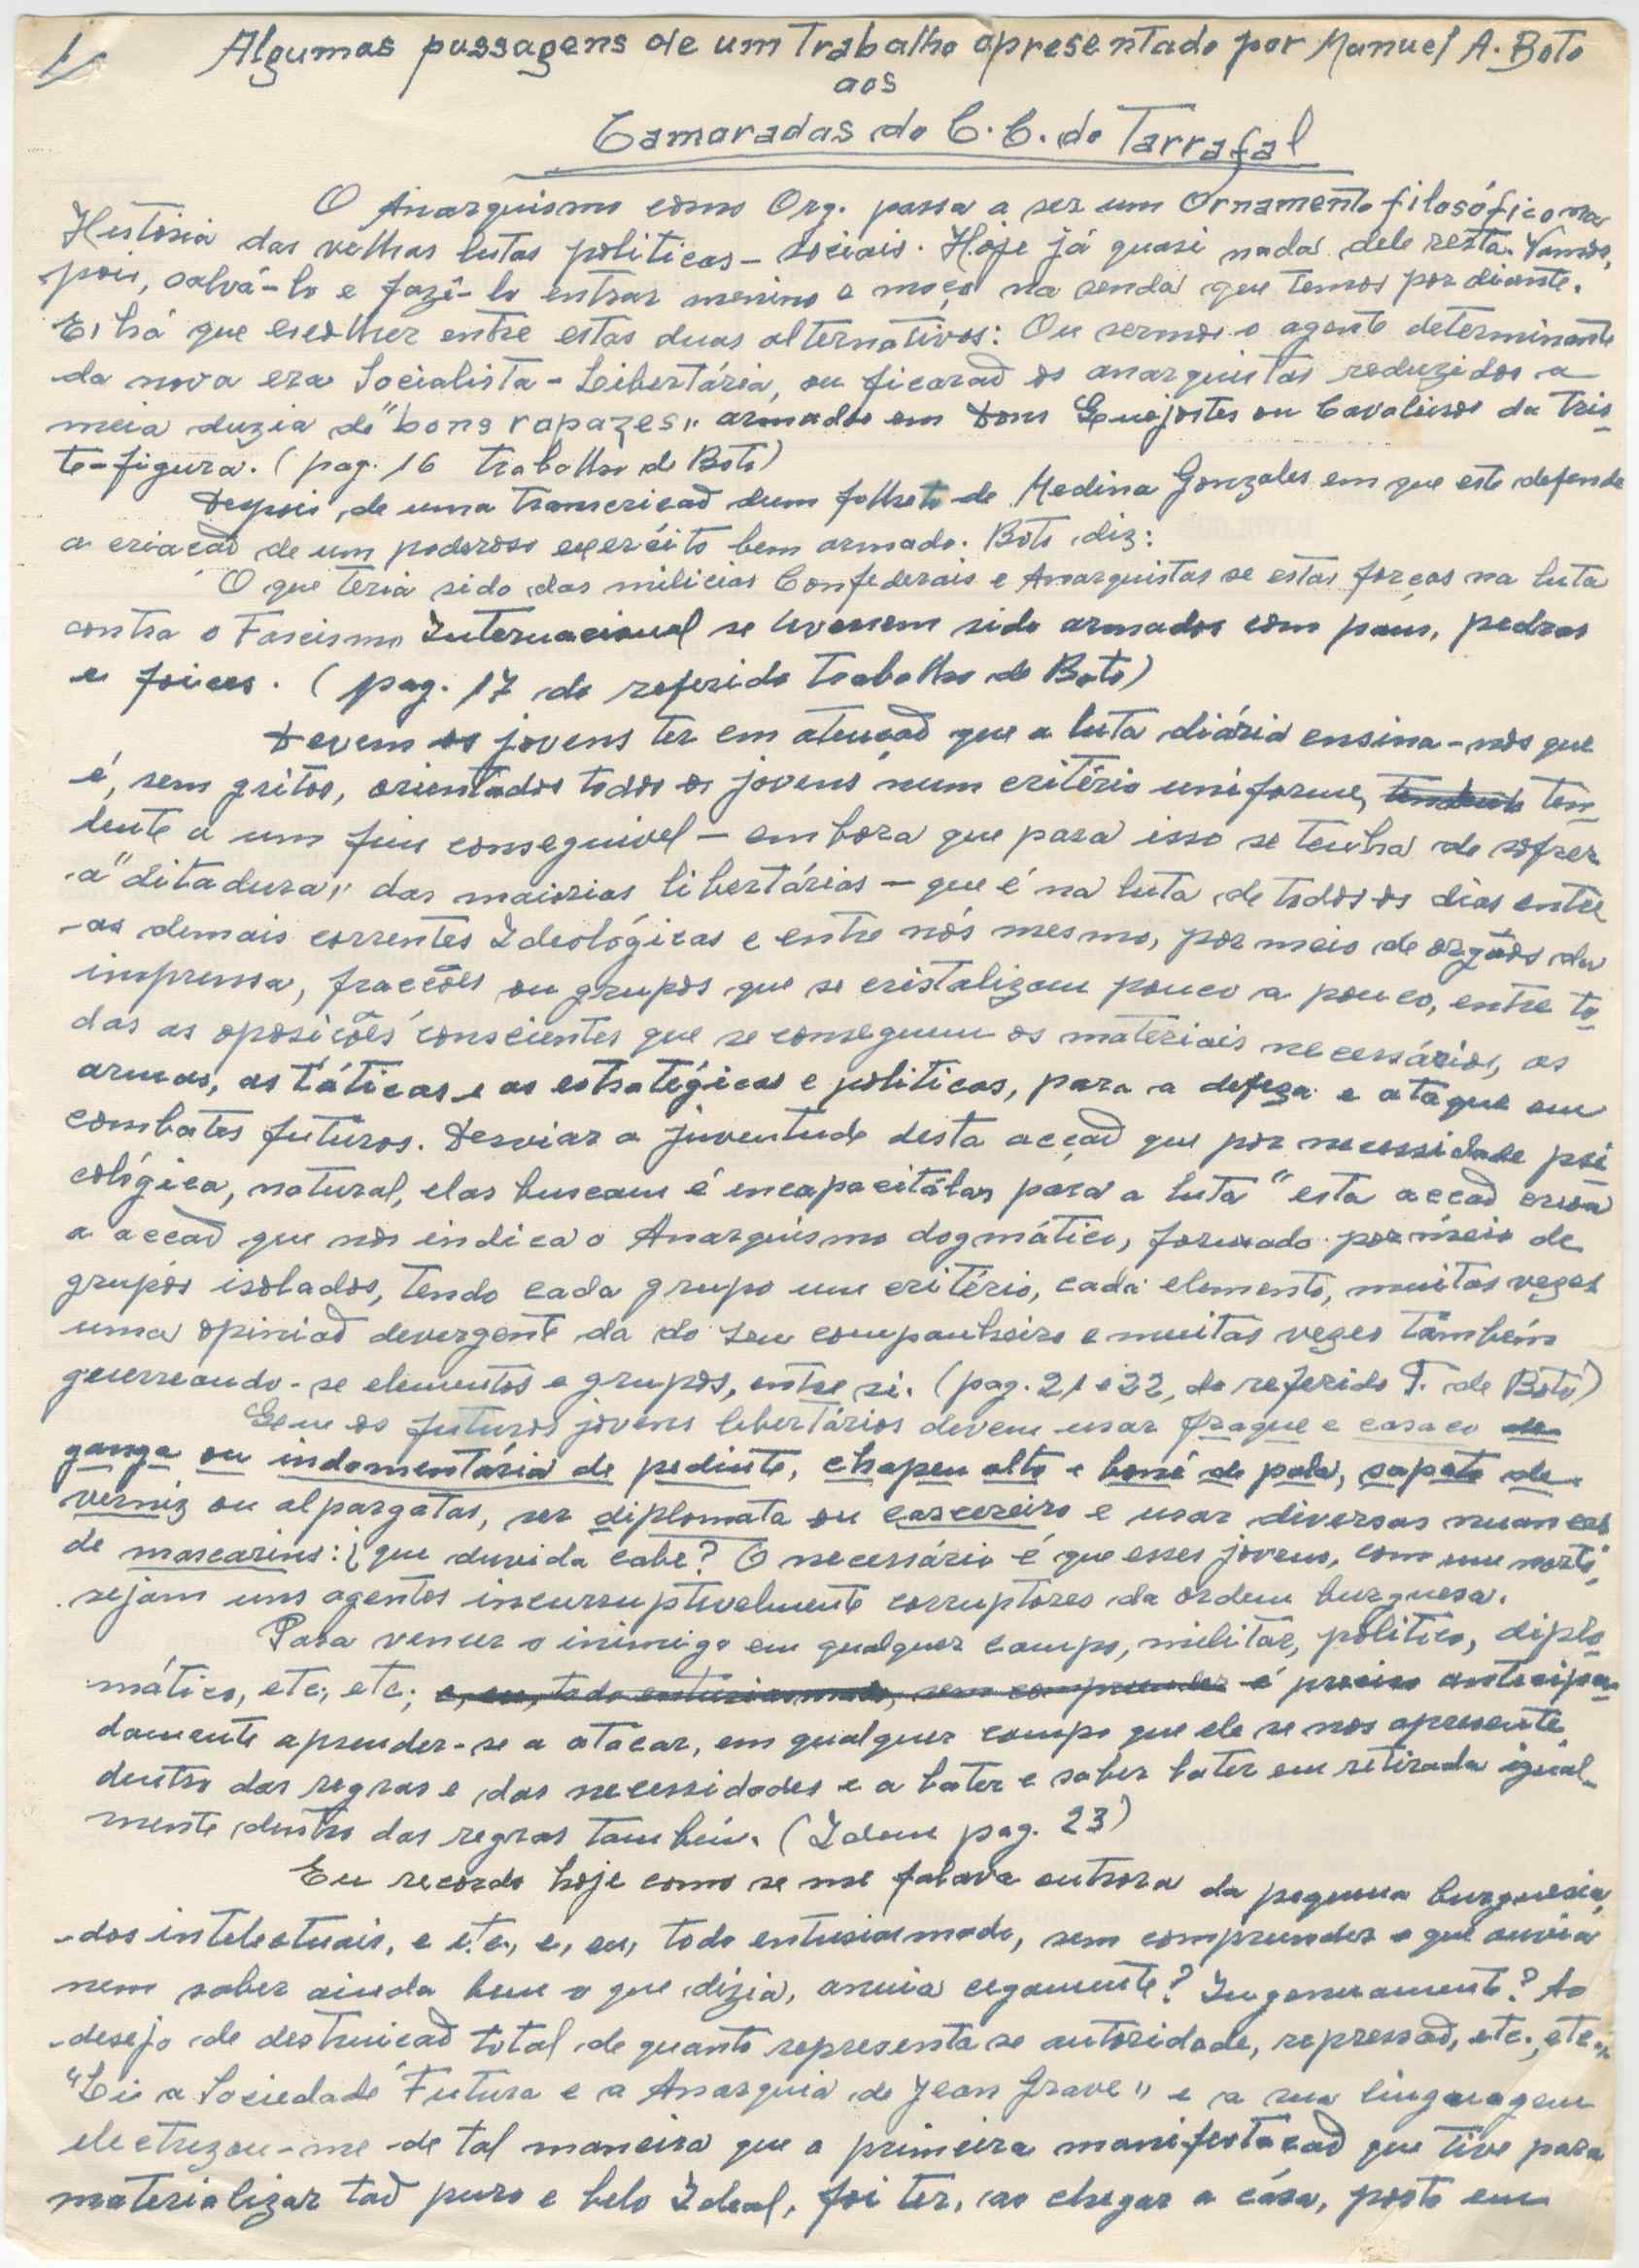 1/ Algumas passagens de um Trabalho apresentado por Manuel A. Boto
aos
Camaradas do C. C. do Tarrafal
O Anarquismo como Org. passa a ser um Ornamento filosófico na
História das velhas lutas politicas - sociais. Hoje já quasi nada dele resta. Vamos,
pois, salvá-lo e fazê-lo entrar menino e moço na senda que temos por diante.
E, há que escolher entre estas duas alternativas: Ou sermos o agente determinante
da nova era Socialista - Libertária, ou ficaraõ os anarquistas reduzidos a
meia duzia de "bons rapazes" armados em Dons Quejostes ou Cavaleiros da Tris-
te-figura. (pag. 16 trabalho de Boto)
Depois de uma transcricaõ dum folheto de Medina Gonzales em que este defende
a criacaõ de um poderoso exercito bem armado. Boto diz:
O que teria sido das milicias Confederais e Anarquistas se estas forças na luta
contra o Fascismo Internacional se tivessem sido armados com paus, pedras
e foices. (pag. 17 do referido trabalho de Boto)
Devem os jovens ter em atençaõ que a luta diária ensina-nos que
é, sem gritos, orientados todos os jovens num critério uniforme, tendente ten-
dente a um fim conseguivel - embora que para isso se tenha de sofrer
a "ditadura" das maiorias libertárias - que é na luta de todos os dias entre
as demais correntes Ideológicas e entre nós mesmo, por meio de orgãos da
imprensa, fracções ou grupos que se cristalizam pouco a pouco, entre to-
das as oposições conscientes que se conseguem os materiais necessários, as
armas, as táticas e as estratégicas e politicas, para a defeza e ataque em
combates futuros. Desviar a juventude desta acçaõ que por necessidade psi-
cológica, natural, elas buscam é incapacitálas para a luta " esta accaõ
a accaõ que nos indica o Anarquismo dogmático, formado por meio de
grupos isolados, tendo cada grupo um critério, cada elemento, muitas vezes
uma opiniaõ devergente da do seu companheiro e muitas vezes também
guerreando-se elementos e grupos, entre si. (pag. 21 e 22, do referido T. de Boto)
Que os futuros jovens libertários devem usar fraque e casaco de
ganga ou indomentária de pedinte, chapeu alto e boné de pala, sapato de
verniz ou alpargatas, ser diplomata ou carcereiro e usar diversas nuances
de mascarins: ¿que duvida cabe? O necessário é que esses jovens, com um norte,
sejam uns agentes incurruptivelmente corruptores da ordem burguesa.
Para vencer o inimigo em qualquer campo, militar, politico, diplo-
mático, etc., etc.; e, eu, todo entusiasmado, sem compreender é preciso antecipa-
damente aprender-se a atacar, em qualquer campo que ele se nos apresente
dentro das regras e das necessidades e a bater e saber bater em retirada igual-
mente dentro das regras também. (Idem pag. 23)
Eu recordo hoje como se me falava outrora da pequena burguesia,
dos intelectuais, e etc., e, eu, todo entusiasmado, sem compreender o que ouvia
nem saber ainda bem o que dizia, anuia cegamente? Ingenuamente? Ao
desejo de destruicaõ total de quanto representa-se autoridade, repressaõ, etc., etc.
"Li a Sociedade Futura e a Anarquia de Jean Grave" e a sua linguagem
electrizou-me de tal maneira que a primeira manifestacaõ que tive para
materializar taõ puro e belo Ideal, foi ter, ao chegar a cása, posto em